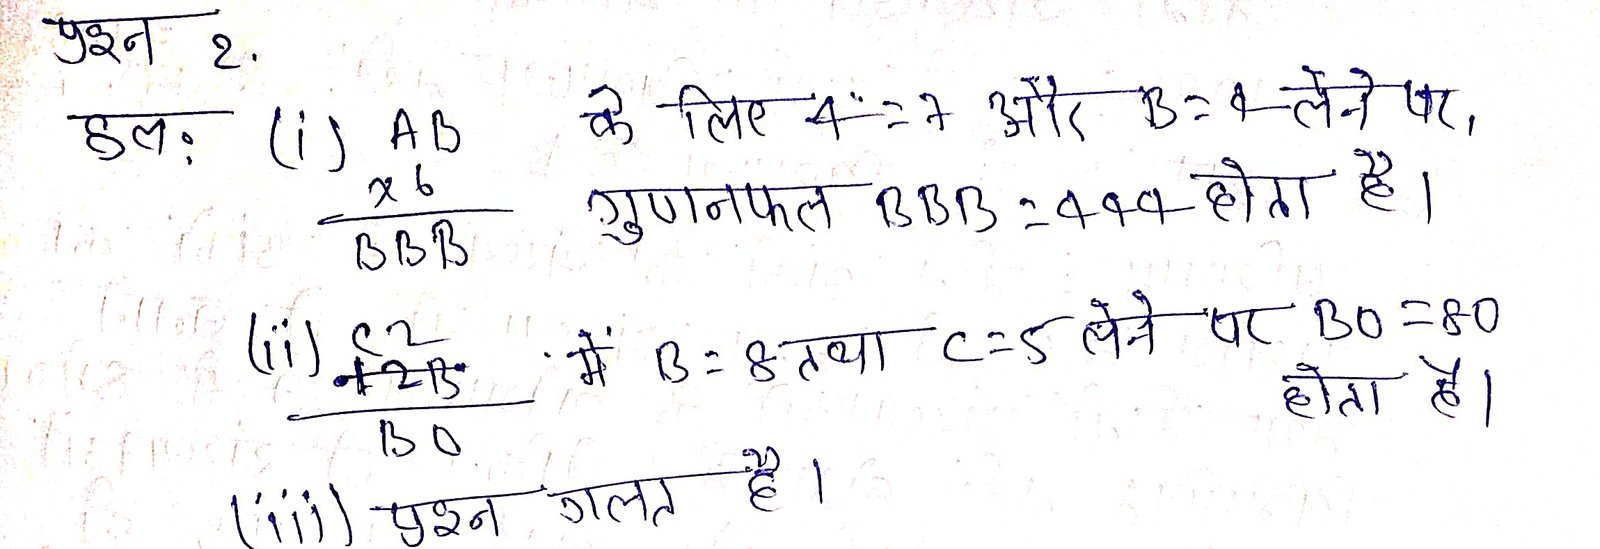 प्रश्न 2.
हल: (i) AB के लिए A = 7 और B = 4 लेने पर,
x 6 गुणनफल BBB = 444 होता है।
BBB
(ii) C2 में B = 8 तथा C = 5 लेने पर B0 = 80
+2B होता है।
B0
(iii) प्रश्न गलत है।